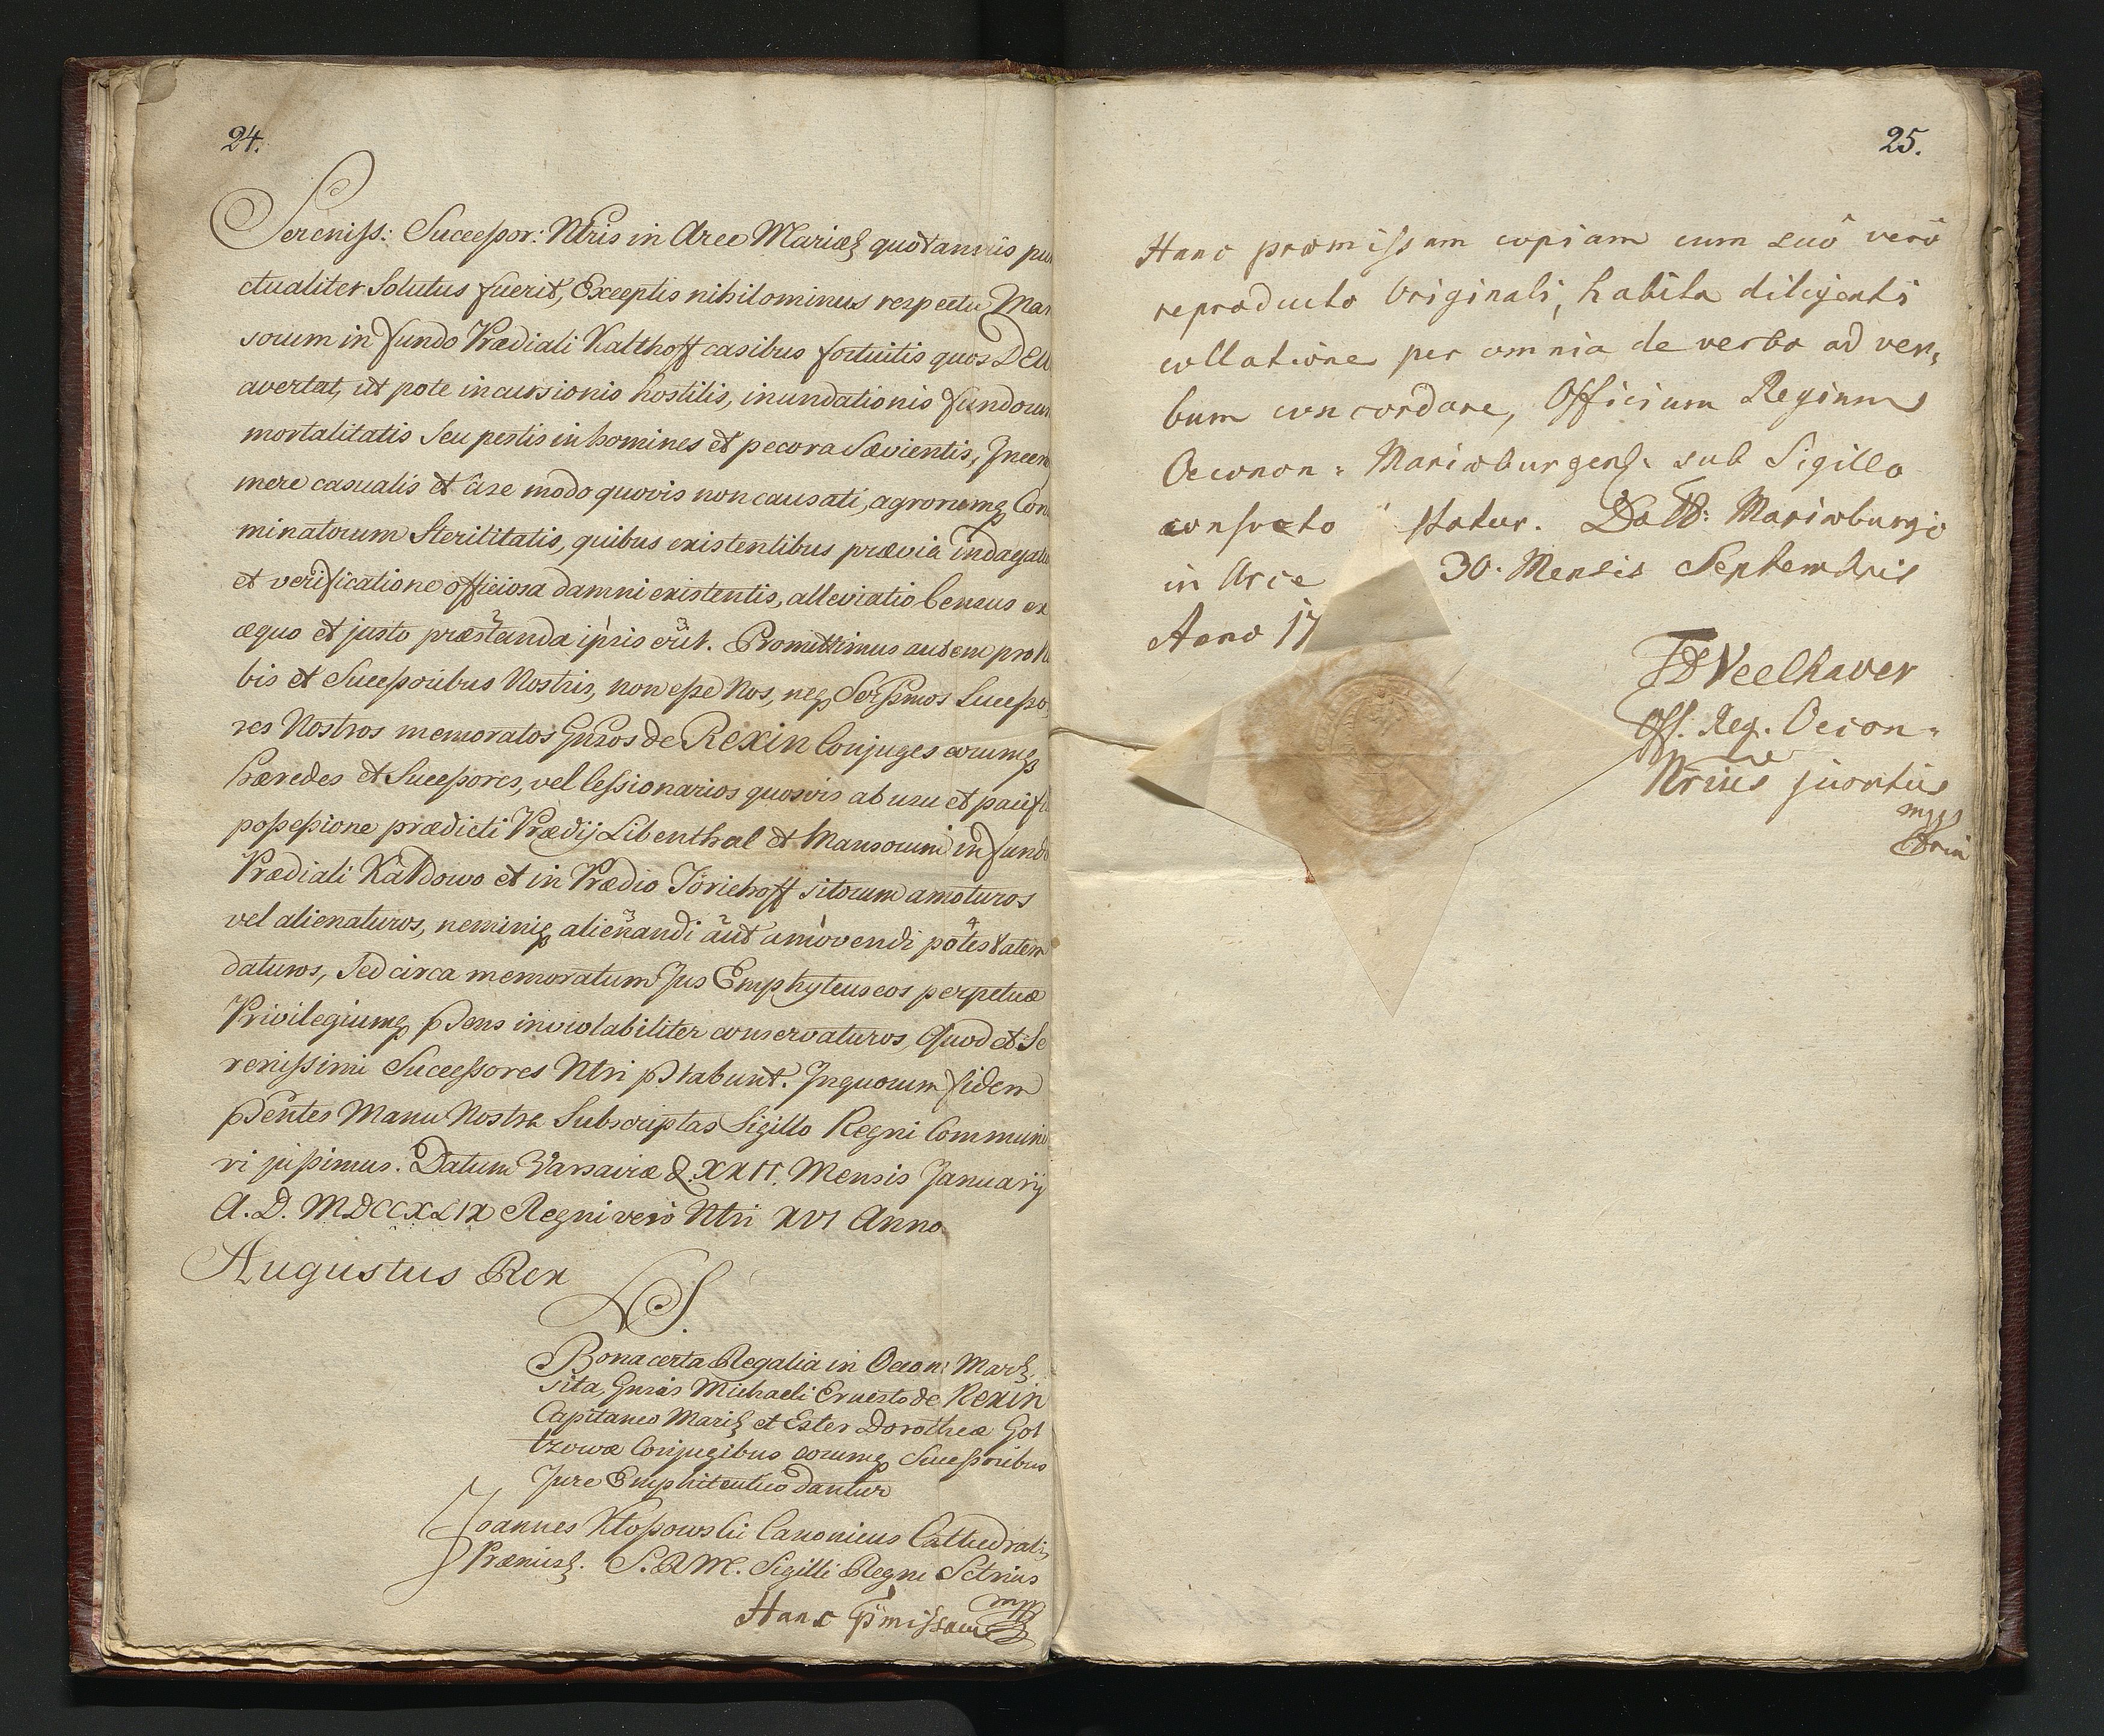 24.
Sereniss: Successor: Ntris in Arce Mariæb quotannis pun
ctualiter Solutus fuerit, Exceptis nihilominus respectu Man
sorum in fundo Prædiali Kalthoff casibus fortuitis quos DEU
avertat, ut pote incursionis hostilis, inundationis fundorum
mortalitatis seu pestis in homines et pecora sævientis, Incen
mere casualis et a se modo quovis non causati, agrorumq Con
minatorum Sterilitatis, quibus existentibus prævia indagatio
et verificatione officiosa damni existentis, alleviatio Census ex
æquo et justo præstanda ipsis erit. Promittimus autem pro No
bis et Successoribus Nostris, non esse Nos, neq Serssmos Successo
res Nostros memoratos Gnsos de Rexin Conjuges eorumq
hæredes et Successores, vel Cessionarios quosvis ab usu et pacifi
possessione prædicti Prædij Libenthal et Mansorum in fundo
Prædiali Kałdowo et in Prædio Görichoff sitorum amoturos
vel alienaturos, neminiq alienandi aut amovendi potestatem
daturos, sed circa memoratum Jus Emphyteuseos perpetuæ
Privilegiumq pdens inviolabiliter conservaturos, Quod et Se
renissimi Successores Ntri pstabunt. In quorum fidem
pdentes Manu Nostra Subscriptas Sigillo Regni Communi
ri jussimus. Datum Varsaviæ d. XXII. Mensis Januarij
A. D. MDCCXLIX Regni vero Ntri XVI Anno
Augustus Rex
LS.
Bona certa Regalia in Oecon: Marb
sita, Gnsis Michaeli Ernesto de Rexin
Capitaneo Marib et Ester Dorotheæ Gol
tzowæ Conjugibus eorumq Successoribus
Jure Emphiteutico dantur
Joannes Kłossowski Canonicus Cathedralis
Præmisl. S. R M. Sigilli Regni Sctrius
mpp
Hanc pmissam
25.
Hanc præmissam copiam cum suô verô
reproducto Originali, habita diligenti
collatione per omnia de verbo ad ver,
bum concordare, Officium Regium
Oeconon: Mariæburgens: sub Sigillo
consveto statur. Datt: Mariæburgi
in Arce 30. Mensis Septembris
Anno 17
Veelhaver
Off. Reg. Oecon:
Nrius juratus
mpp